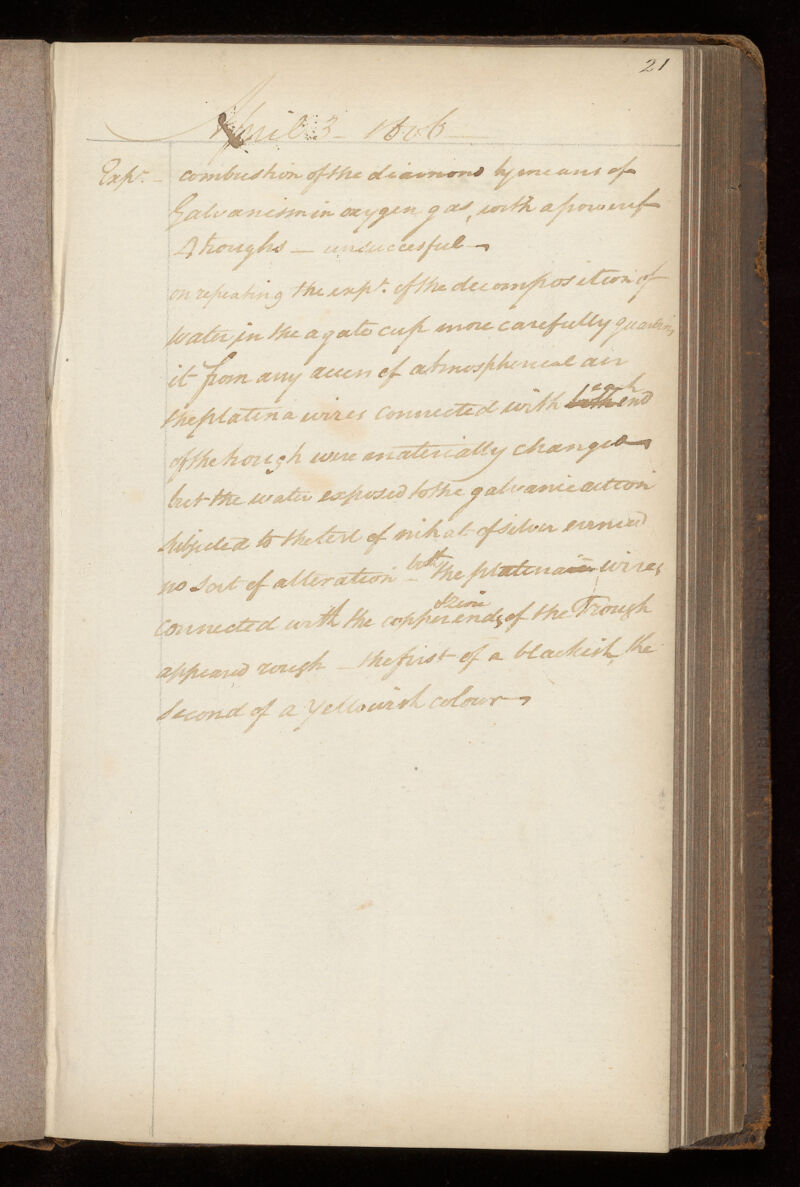 21
April 3 - 1806 -
Expt. - combustion of the diamond by means of
Galvanism in oxygen gas, with a power of
4 troughs - unsuccesful -
on repeating the expt. of the decomposition of
water in the agate cup more carefully guarding
it from any access of atmospherical air
the platina wires connected with both each end
of the trough were materially changed
but the water exposed to the galvanic action
subjected to the test of nitrat of silver evinced
no sort of alteration - both the platina wires
connected with the copper & zinc ends of the Trough
appeared rough - the first of a blackish, the
second of a yellowish colour -